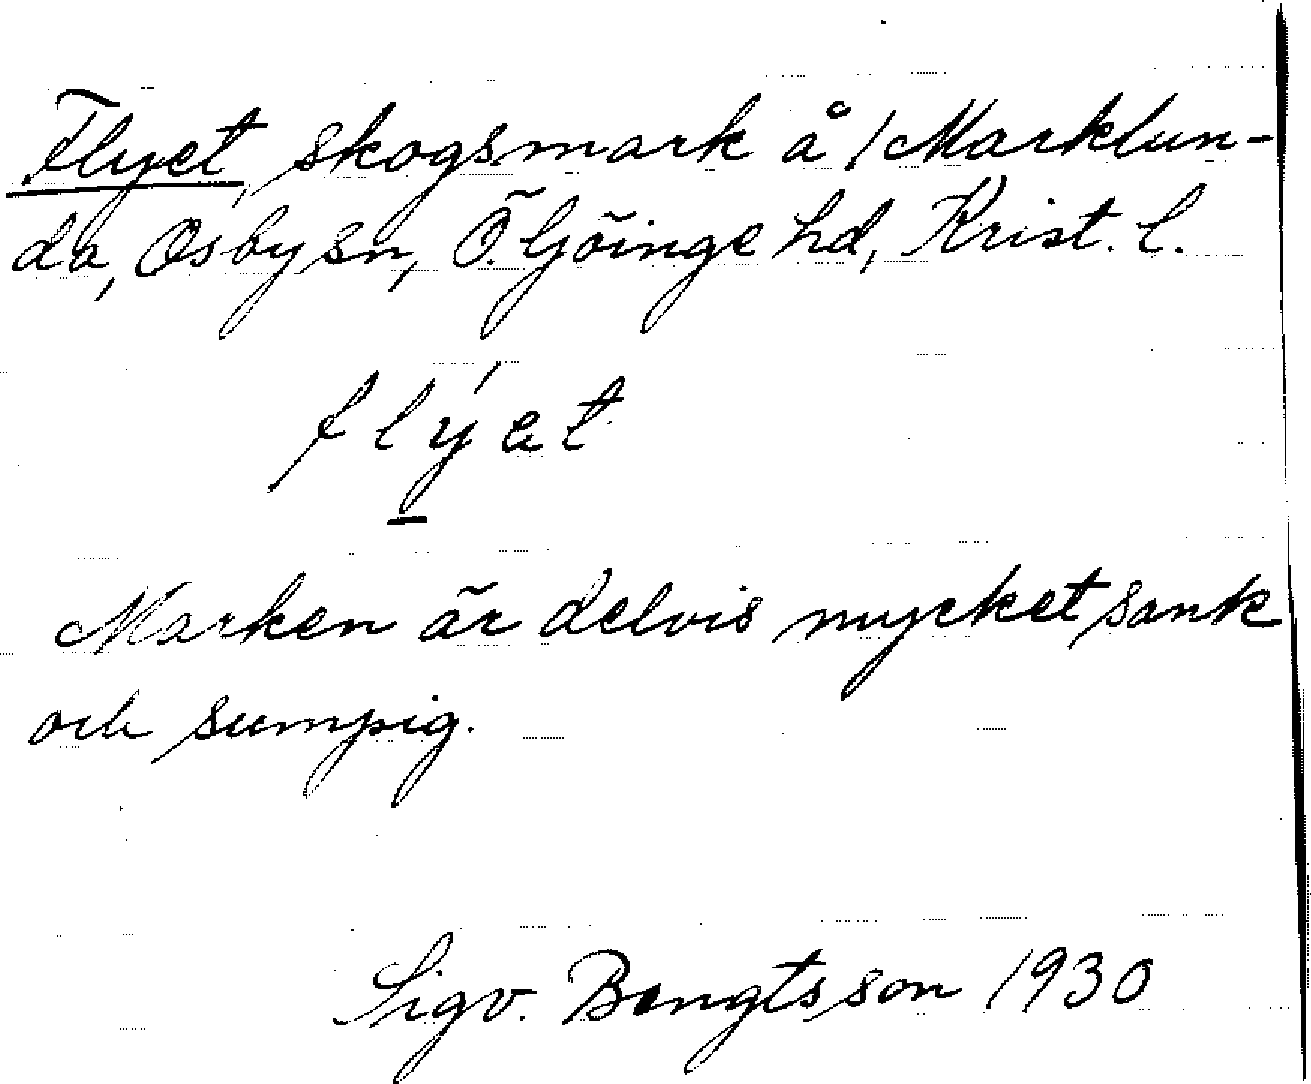 Flyet, skogsmark å 1 Marklun-
da, Osby sn, Ö. Göinge hd, Krist. l.
flýet
Marken är delvis mycket sank
och sumpig.
Sigv. Bengtsson 1930